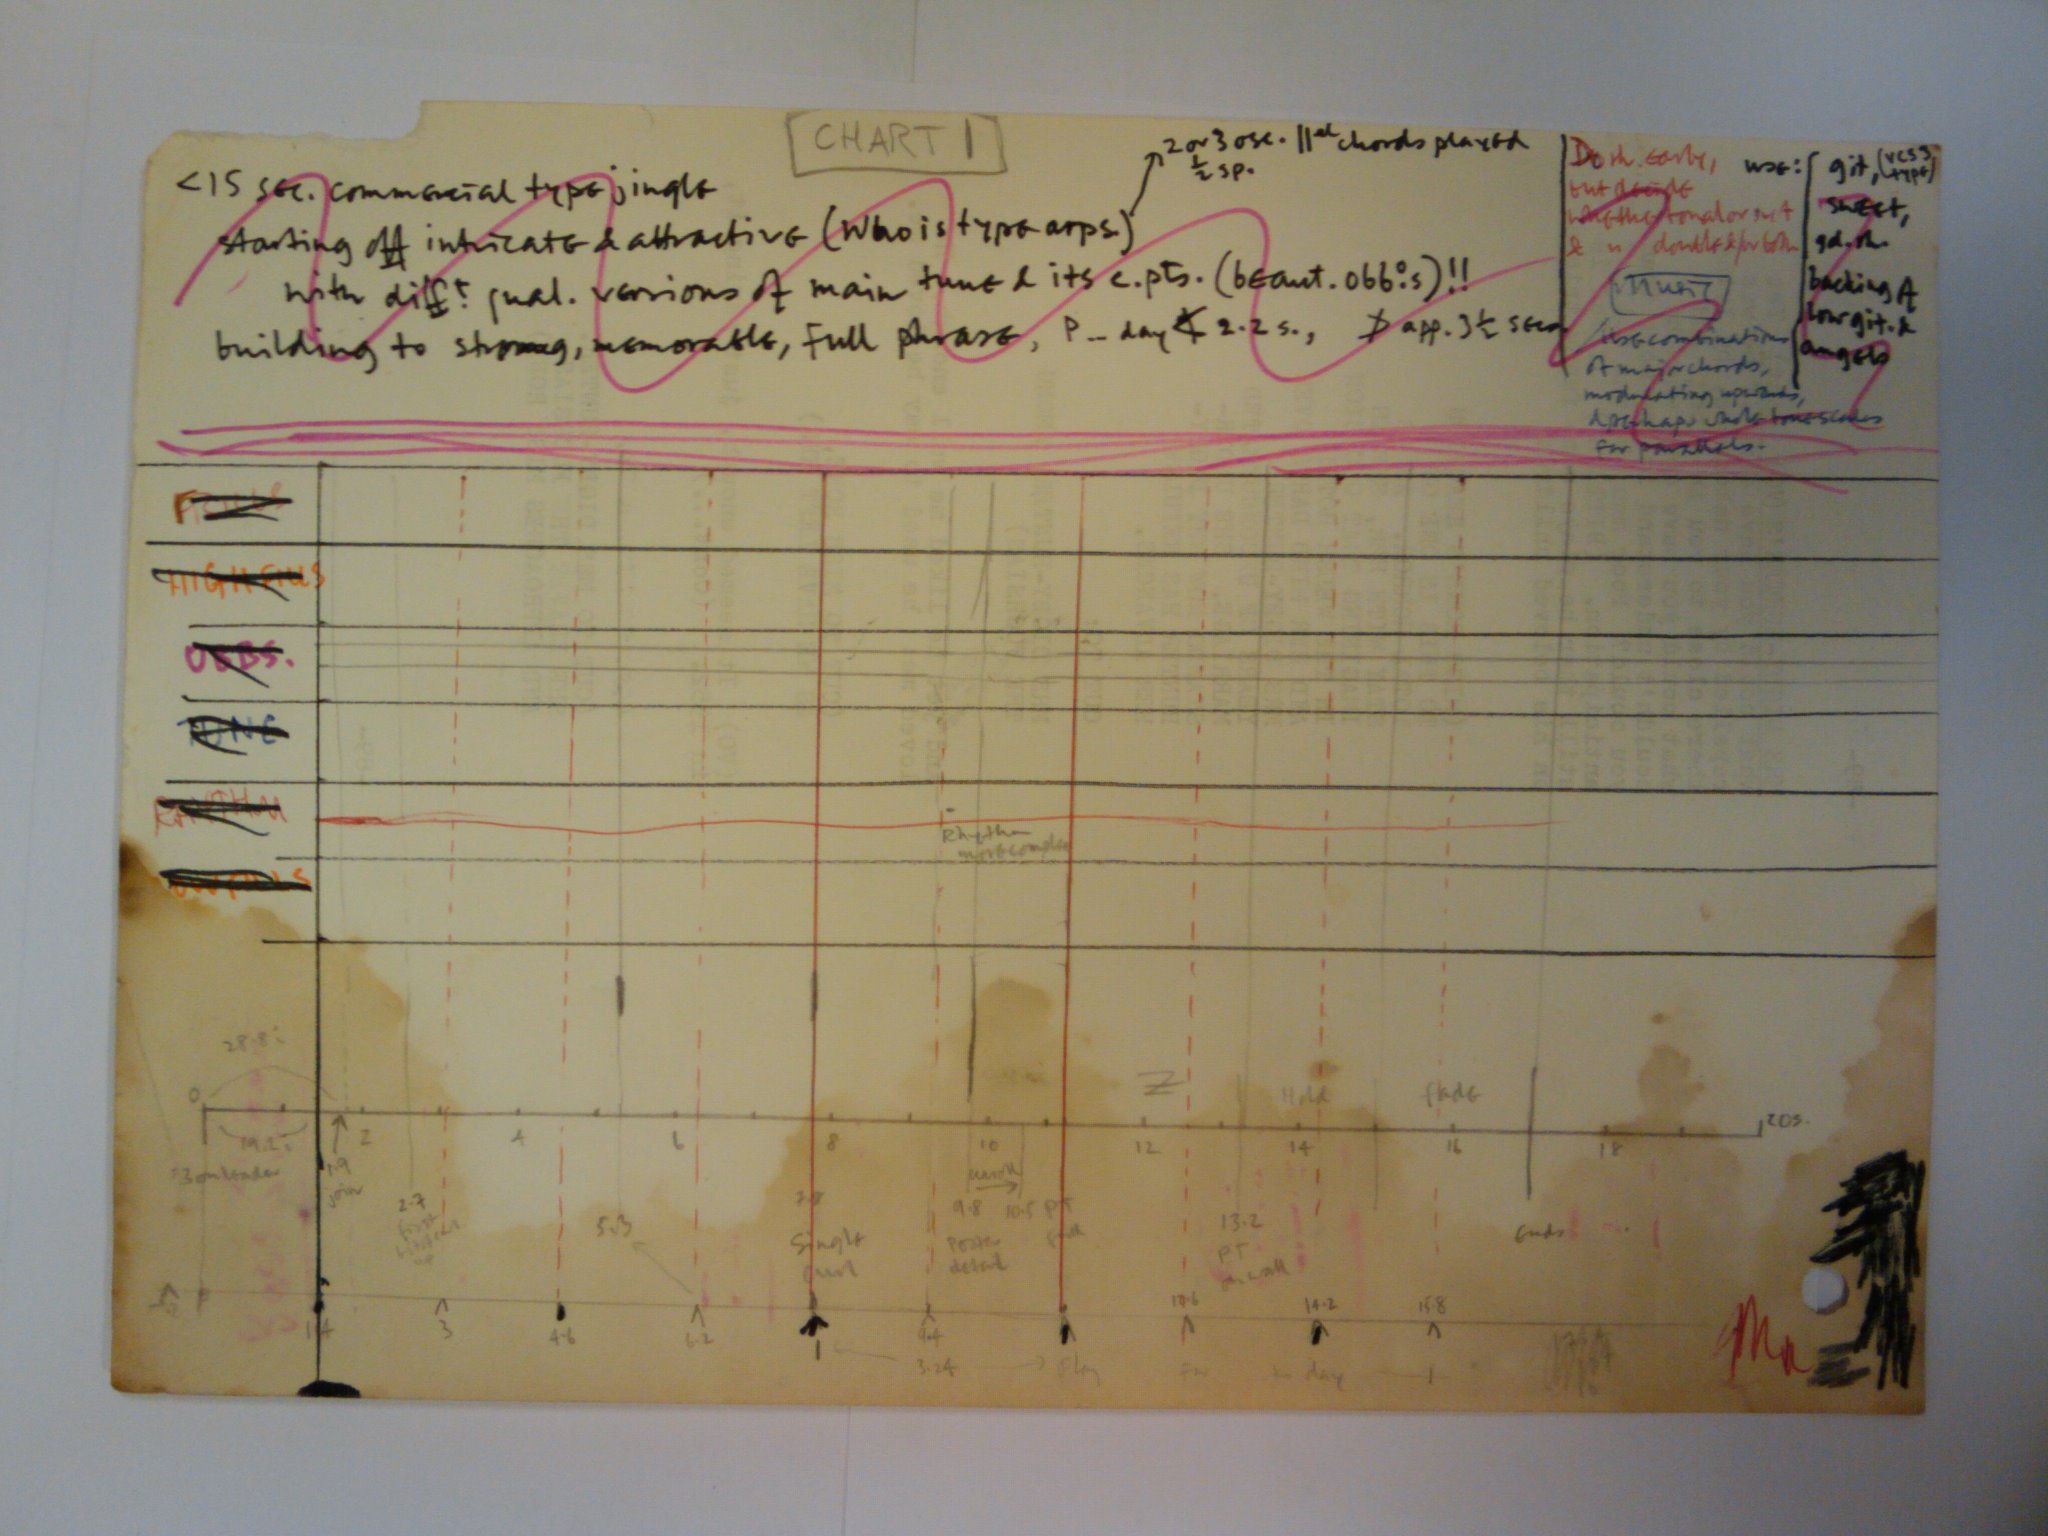 CHART 1
2 or 3 osc. ||el chords played
½ sp.
<15 sec. commercial type jingle
starting off intricate & attractive (Who is type arps.)
with diff.t qual. versions of main tune & its c.pts. (beaut. obb:s)!!
building to strong, memorable, full phrase, P – day 2.2 s., app. 3½ secs
Do rh. early,
but decide
whether tonal or not
&
use:
git, (VCS3 type)
sweet,
gd. rh.
backing of
low git. &
angels
Music
Use combinations
of major chords,
modulating upwards,
& perhaps whole tone scales
for parallels.
HIGH FILLS
OBBS.
TUNE
RHYTHM
Rhythm
more complex
LOW FILLS
28.8"
Z
Hold
Fade
0
2
4
6
8
10
12
14
16
18
20s.
19.2"
3 on leader
1.9
join
2.7
first
up
5.3
7.8
Single
9.8
poster
detail
10.5 PT
13.2
PT
on wall
Ends
1.4
3
4.6
6.2
1
9.4
12.6
14.2
15.8
3.24
Play
for
to day